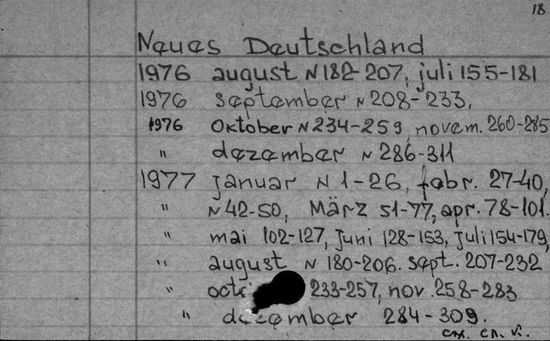 18
Neues Deutschland
1976 august N 182-207, juli 155-181
1976 september N 208-233,
1976 Oktober N 234-259, novem. 260-285
" dezember N 286-311
1977 januar N 1-26, febr. 27-40,
" N 42-50, März 51-77, apr. 78-101.
" mai 102-127, juni 128-153, juli 154-179,
" august N 180-206. sept. 207-232
" 233-257, nov. 258-283
" dezember 284-309.
см. сл. к.